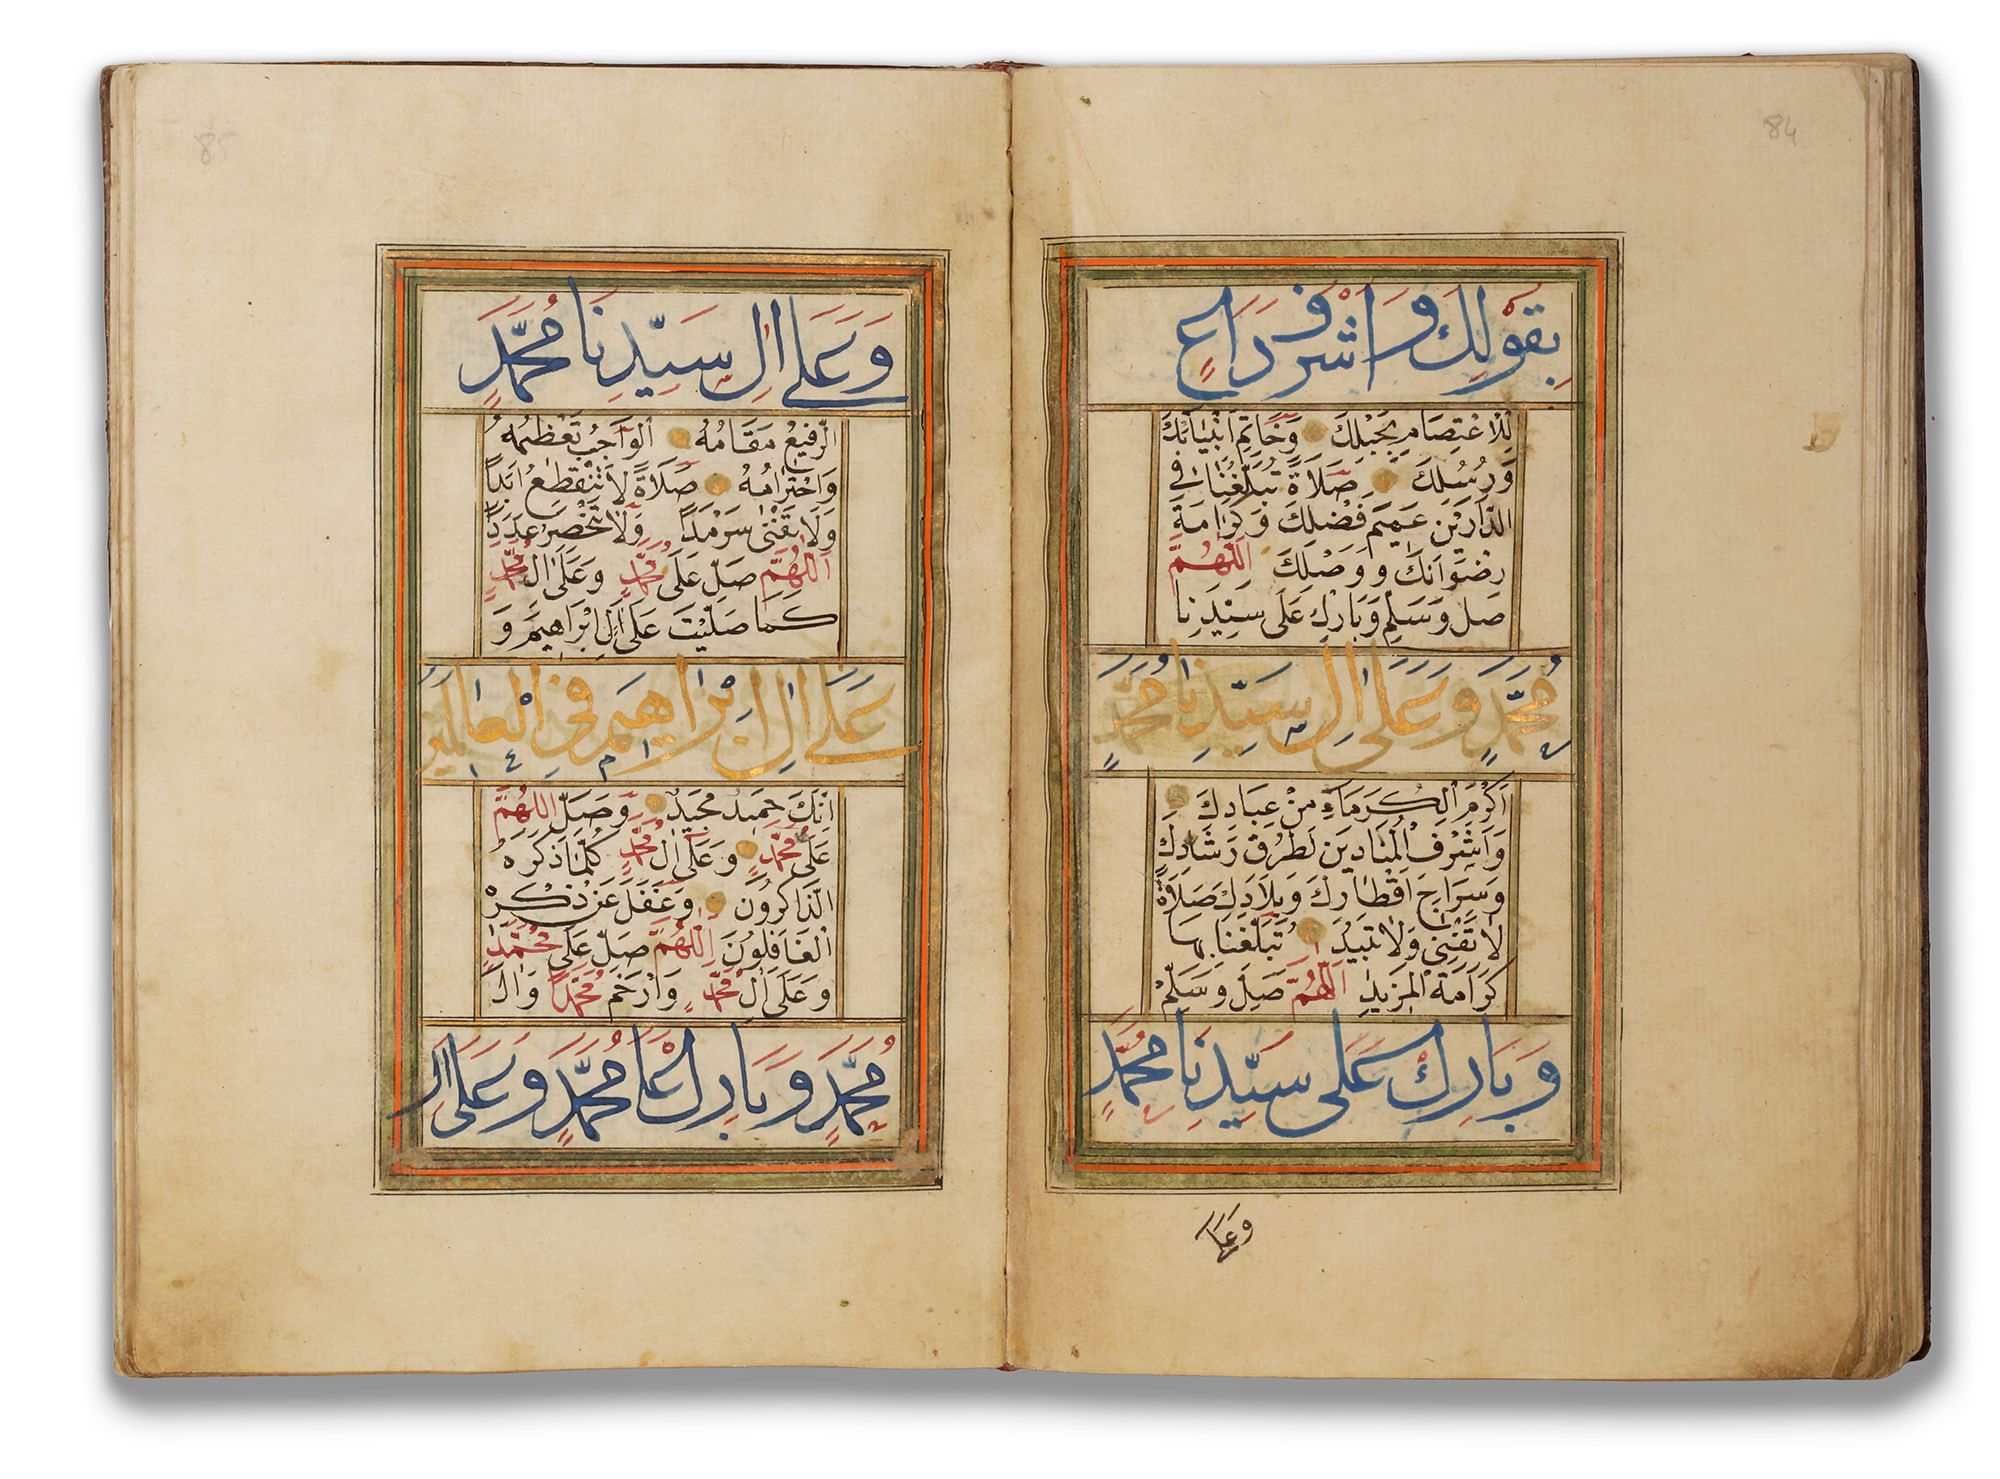 84
بِقَوْلِكَ وَاَشْرَفِ دَاعٍ
لِلْاِعْتِصَامِ بِحَبْلِكَ وَخَاتِمِ اَنْبِيَائِكَ
وَرُسُلِكَ صَلَاةً تُبَلِّغُنَا فِي
الدَّارَيْنِ عَمِيمَ فَضْلِكَ وَكَرَامَةَ
رِضْوَانِكَ وَوَصْلِكَ اَللّٰهُمَّ
صَلِّ وَسَلِّمْ وَبَارِكْ عَلَى سَيِّدِنَا
مُحَمَّدٍ وَعَلَى اٰلِ سَيِّدِنَا مُحَمَّدٍ
اَكْرَمِ الْكُرَمَاءِ مِنْ عِبَادِكَ
وَاَشْرَفِ الْمُنَادِينَ لِطُرُقِ رَشَادِكَ
وَسِرَاجِ اَقْطَارِكَ وَبِلَادِكَ صَلَاةً
لَا تَفْنَى وَلَا تَبِيدُ تُبَلِّغُنَا بِهَا
كَرَامَةَ الْمَزِيدِ اَللّٰهُمَّ صَلِّ وَسَلِّمْ
وَبَارِكْ عَلَى سَيِّدِنَا مُحَمَّدٍ
وَعَلَى
85
وَعَلَى اٰلِ سَيِّدِنَا مُحَمَّدٍ
الرَّفِيعِ مَقَامُهُ الْوَاجِبِ تَعْظِيمُهُ
وَاحْتِرَامُهُ صَلَاةً لَا تَنْقَطِعُ اَبَدًا
وَلَا تَفْنَى سَرْمَدًا وَلَا تَنْحَصِرُ عَدَدًا
اَللّٰهُمَّ صَلِّ عَلَى مُحَمَّدٍ وَعَلَى اٰلِ مُحَمَّدٍ
كَمَا صَلَّيْتَ عَلَى اٰلِ اِبْرَاهِيمَ وَ
عَلَى اٰلِ اِبْرَاهِيمَ فِي الْعَالَمِينَ
اِنَّكَ حَمِيدٌ مَجِيدٌ وَصَلِّ اللّٰهُمَّ
عَلَى مُحَمَّدٍ وَعَلَى اٰلِ مُحَمَّدٍ كُلَّمَا ذَكَرَهُ
الذَّاكِرُونَ وَغَفَلَ عَنْ ذِكْرِهِ
الْغَافِلُونَ اَللّٰهُمَّ صَلِّ عَلَى مُحَمَّدٍ
وَعَلَى اٰلِ مُحَمَّدٍ وَارْحَمْ مُحَمَّدًا وَاٰلَ
مُحَمَّدٍ وَبَارِكْ عَلَى مُحَمَّدٍ وَعَلَى اٰلِ